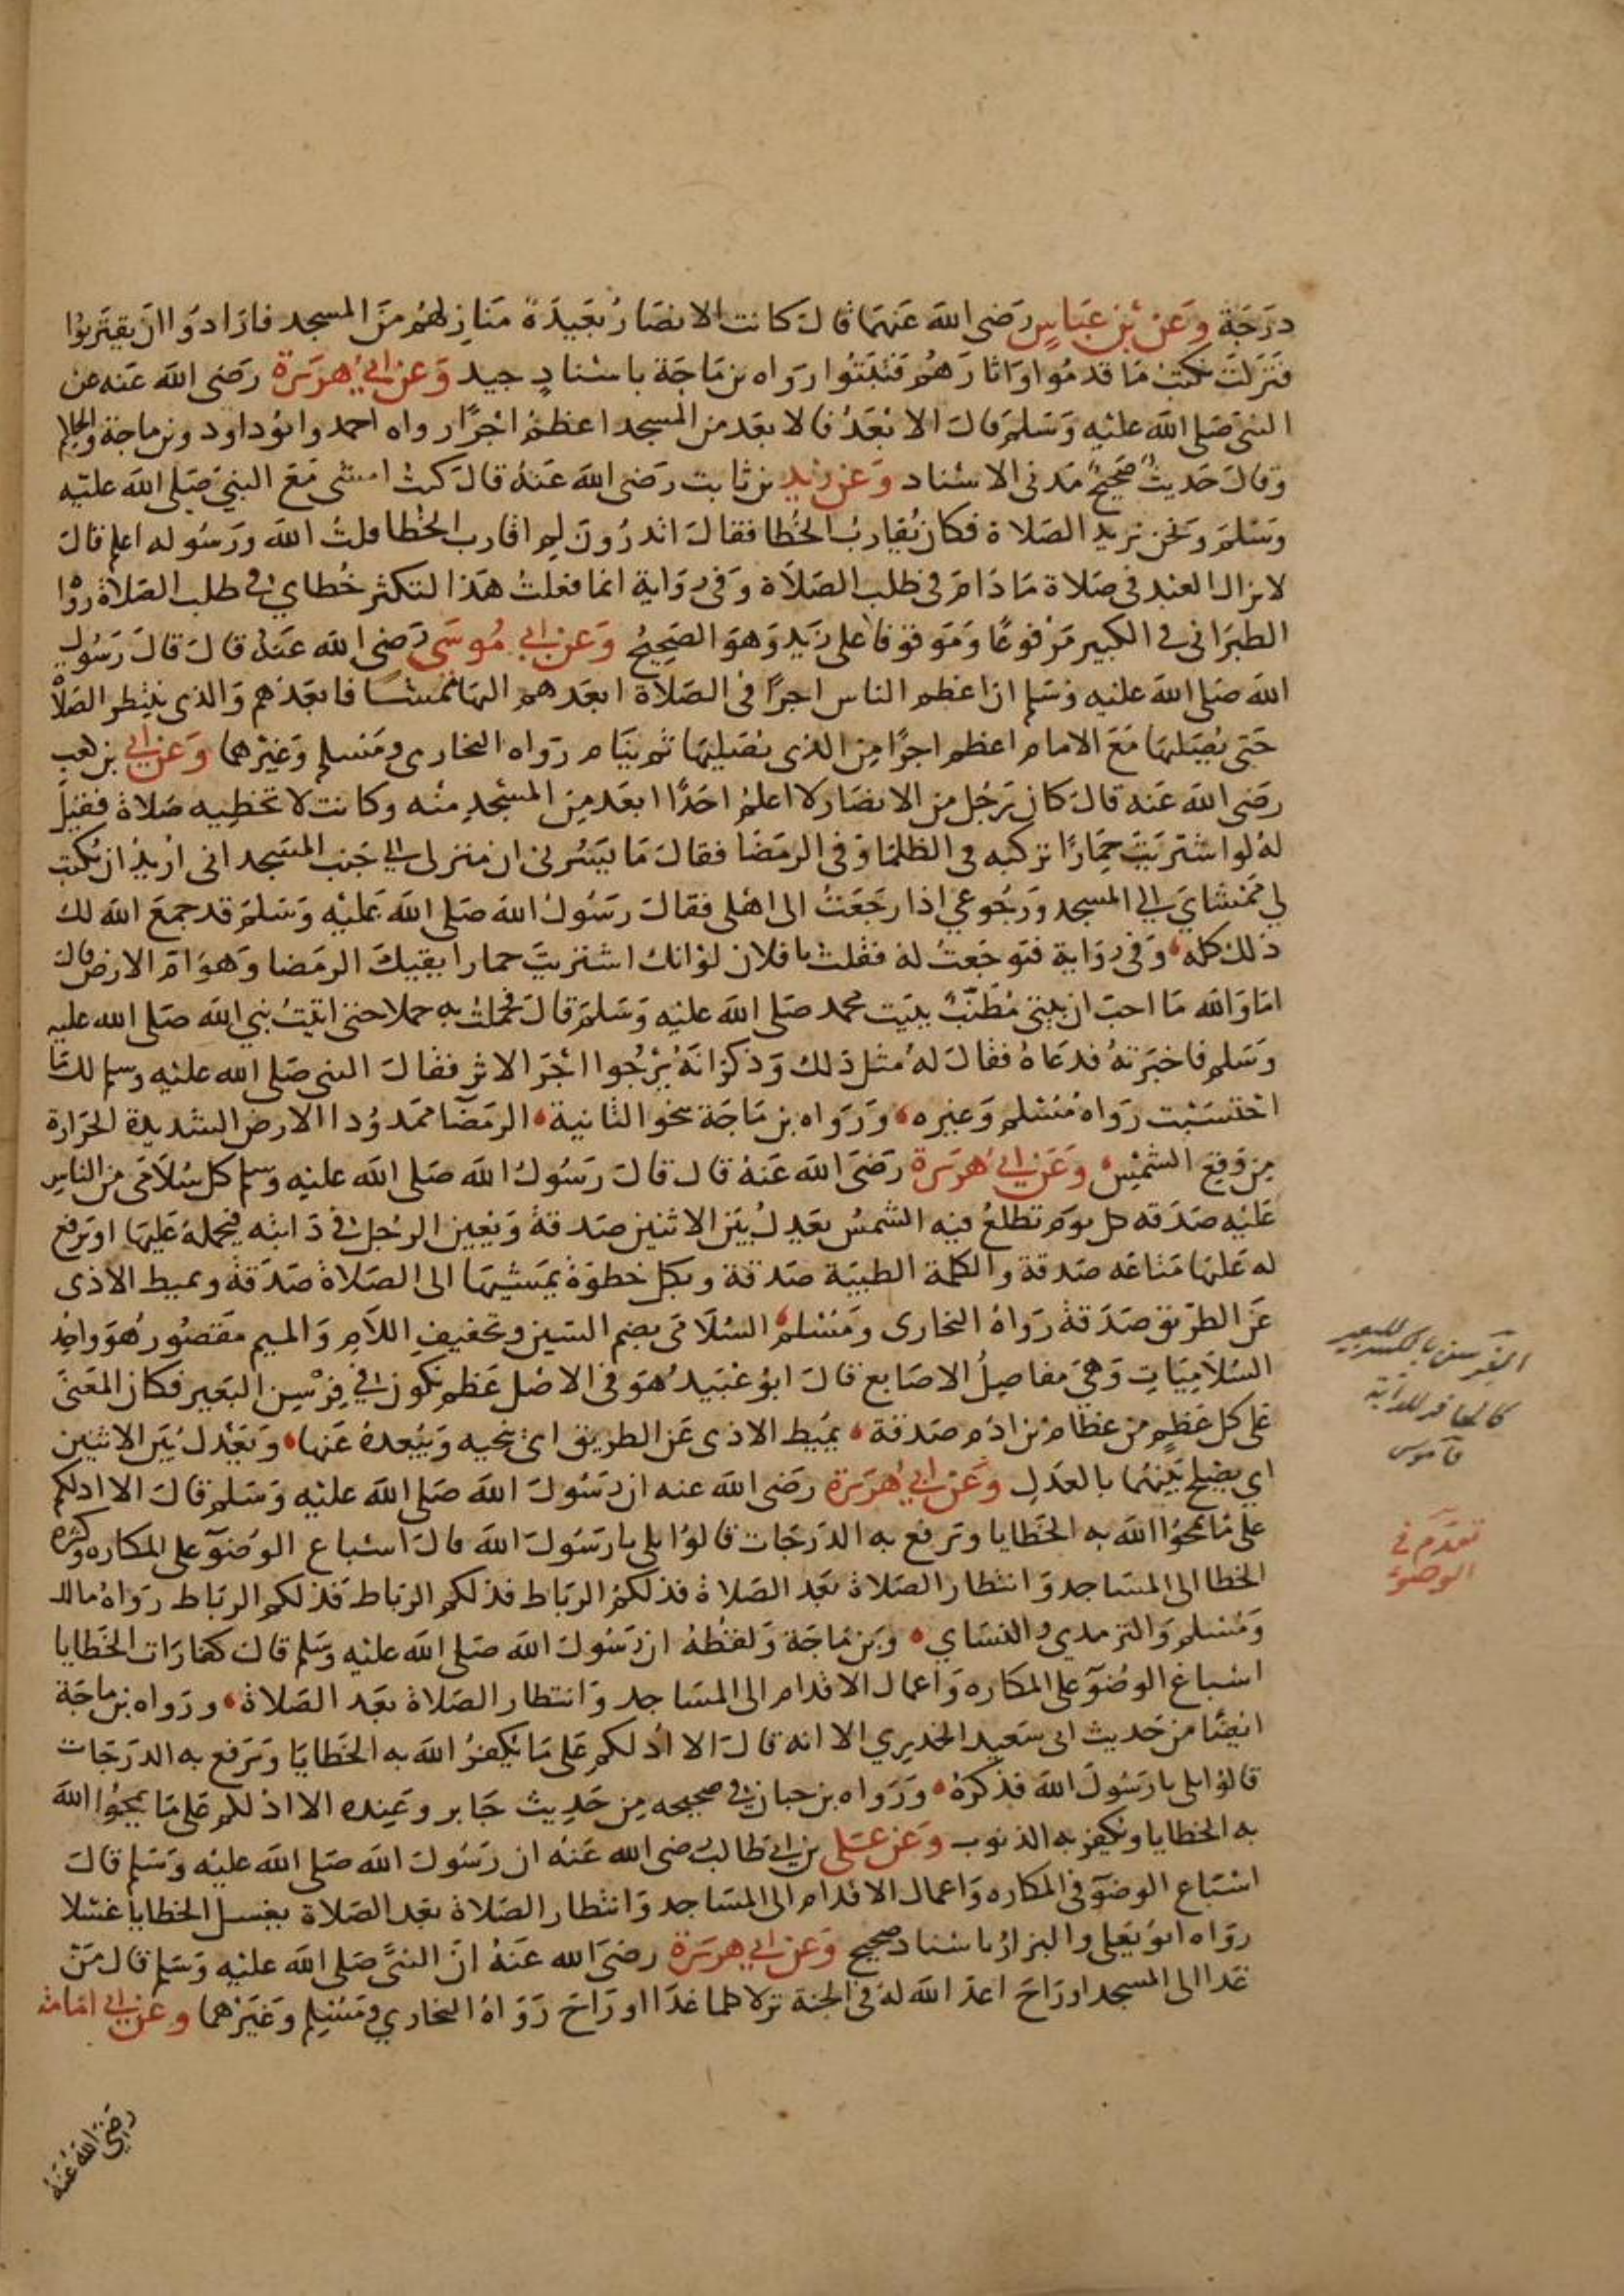 درجة وعن بن عباس رضي الله عنهما قال كانت الانصار بعيدة منازلهم من المسجد فارادوا ان يقتربوا
فنزلت نكتب ما قدموا واثارهم فثبتوا رواه بن ماجة باسناد جيد وعن ابي هريرة رضي الله عنه عن
النبي صلى الله عليه وسلم قال الابعد فالابعد من المسجد اعظم اجرا رواه احمد وابو داود وبن ماجة والحاكم
وقال حديث صحيح مدني الاسناد وعن زيد بن ثابت رضي الله عنه قال كنت امشي مع النبي صلى الله عليه
وسلم ونحن نريد الصلاة فكان يقارب الخطا فقال اتدرون لم اقارب الخطا قلت الله ورسوله اعلم قال
لا يزال العبد في صلاة ما دام في طلب الصلاة وفي رواية انما فعلت هذا لتكثر خطاي في طلب الصلاة رواه
الطبراني في الكبير مرفوعا وموقوفا على زيد وهو الصحيح وعن ابي موسى رضي الله عنه قال قال رسول
الله صلى الله عليه وسلم ان اعظم الناس اجرا في الصلاة ابعدهم اليها ممشا فابعدهم والذي ينتظر الصلاة
حتى يصليها مع الامام اعظم اجرا من الذي يصليها ثم ينام رواه البخاري ومسلم وغيرهما وعن ابي بن كعب
رضي الله عنه قال كان رجل من الانصار لا اعلم احدا ابعد من المسجد منه وكانت لا تخطيه صلاة فقيل
له لو اشتريت حمارا تركبه في الظلما وفي الرمضا فقال ما يسرني ان منزلي الي جنب المسجد اني اريد ان يكتب
لي ممشاي الي المسجد ورجوعي اذا رجعت الى اهلي فقال رسول الله صلى الله عليه وسلم قد جمع الله لك
ذلك كله وفي رواية فتوجعت له فقلت يا فلان لو انك اشتريت حمارا يقيك الرمضا وهوام الارض قال
اما والله ما احب ان بيتي مطنب ببيت محمد صلى الله عليه وسلم قال فحملت به حملا حتى اتيت نبي الله صلى الله عليه
وسلم فاخبرته فدعاه فقال له مثل ذلك وذكر انه يرجوا اجر الاثر فقال النبي صلى الله عليه وسلم لك ما
احتسبت رواه مسلم وغيره ورواه بن ماجة بنحو الثانية الرمضا ممدودا الارض الشديدة الحرارة
من وقع الشمس وعن ابي هريرة رضي الله عنه قال قال رسول الله صلى الله عليه وسلم كل سلامى من الناس
عليه صدقه كل يوم تطلع فيه الشمس يعدل بين الاثنين صدقة ويعين الرجل في دابته فيحمله عليها او يرفع
له عليها متاعه صدقة والكلمة الطيبة صدقة وبكل خطوة يمشيها الى الصلاة صدقة ويميط الاذى
عن الطريق صدقة رواه البخاري ومسلم السلامى بضم السين وتخفيف اللام والميم مقصور هو واحد
السلاميات وهي مفاصل الاصابع قال ابو عبيد هو في الاصل عظم يكون في فرسن البعير فكان المعنى
على كل عظم من عظام بن ادم صدقة يميط الاذى عن الطريق اي ينحيه ويبعده عنها ويعدل بين الاثنين
اي يصلح بينهما بالعدل وعن ابي هريرة رضي الله عنه ان رسول الله صلى الله عليه وسلم قال الا ادلكم
على ما يمحوا الله به الخطايا ويرفع به الدرجات قالوا بلى يا رسول الله قال اسباغ الوضوء على المكاره وكثرة
الخطا الى المساجد وانتظار الصلاة بعد الصلاة فذلكم الرباط فذلكم الرباط فذلكم الرباط رواه مالك
ومسلم والترمذي والنسائي وبن ماجة ولفظه ان رسول الله صلى الله عليه وسلم قال كفارات الخطايا
اسباغ الوضوء على المكاره واعمال الاقدام الى المساجد وانتظار الصلاة بعد الصلاة ورواه بن ماجة
ايضا من حديث ابي سعيد الخدري الا انه قال الا ادلكم على ما يكفر الله به الخطايا ويرفع به الدرجات
قالوا بلى يا رسول الله فذكره ورواه بن حبان في صحيحه من حديث جابر وعنده الا ادلكم على ما يمحوا الله
به الخطايا ويكفر به الذنوب وعن على بن ابي طالب رضي الله عنه ان رسول الله صلى الله عليه وسلم قال
اسباغ الوضوء في المكاره واعمال الاقدام الى المساجد وانتظار الصلاة بعد الصلاة يغسل الخطايا غسلا
رواه ابو يعلى والبزار باسناد صحيح وعن ابي هريرة رضي الله عنه ان النبي صلى الله عليه وسلم قال من
غدا الى المسجد او راح اعد الله له في الجنة نزلا كلما غدا او راح رواه البخاري ومسلم وغيرهما وعن ابي امامة
رضي الله عنه
الفرسن بالكسر للبعير
كالحافر للدابة
قاموس
تقدم في
الوضوء